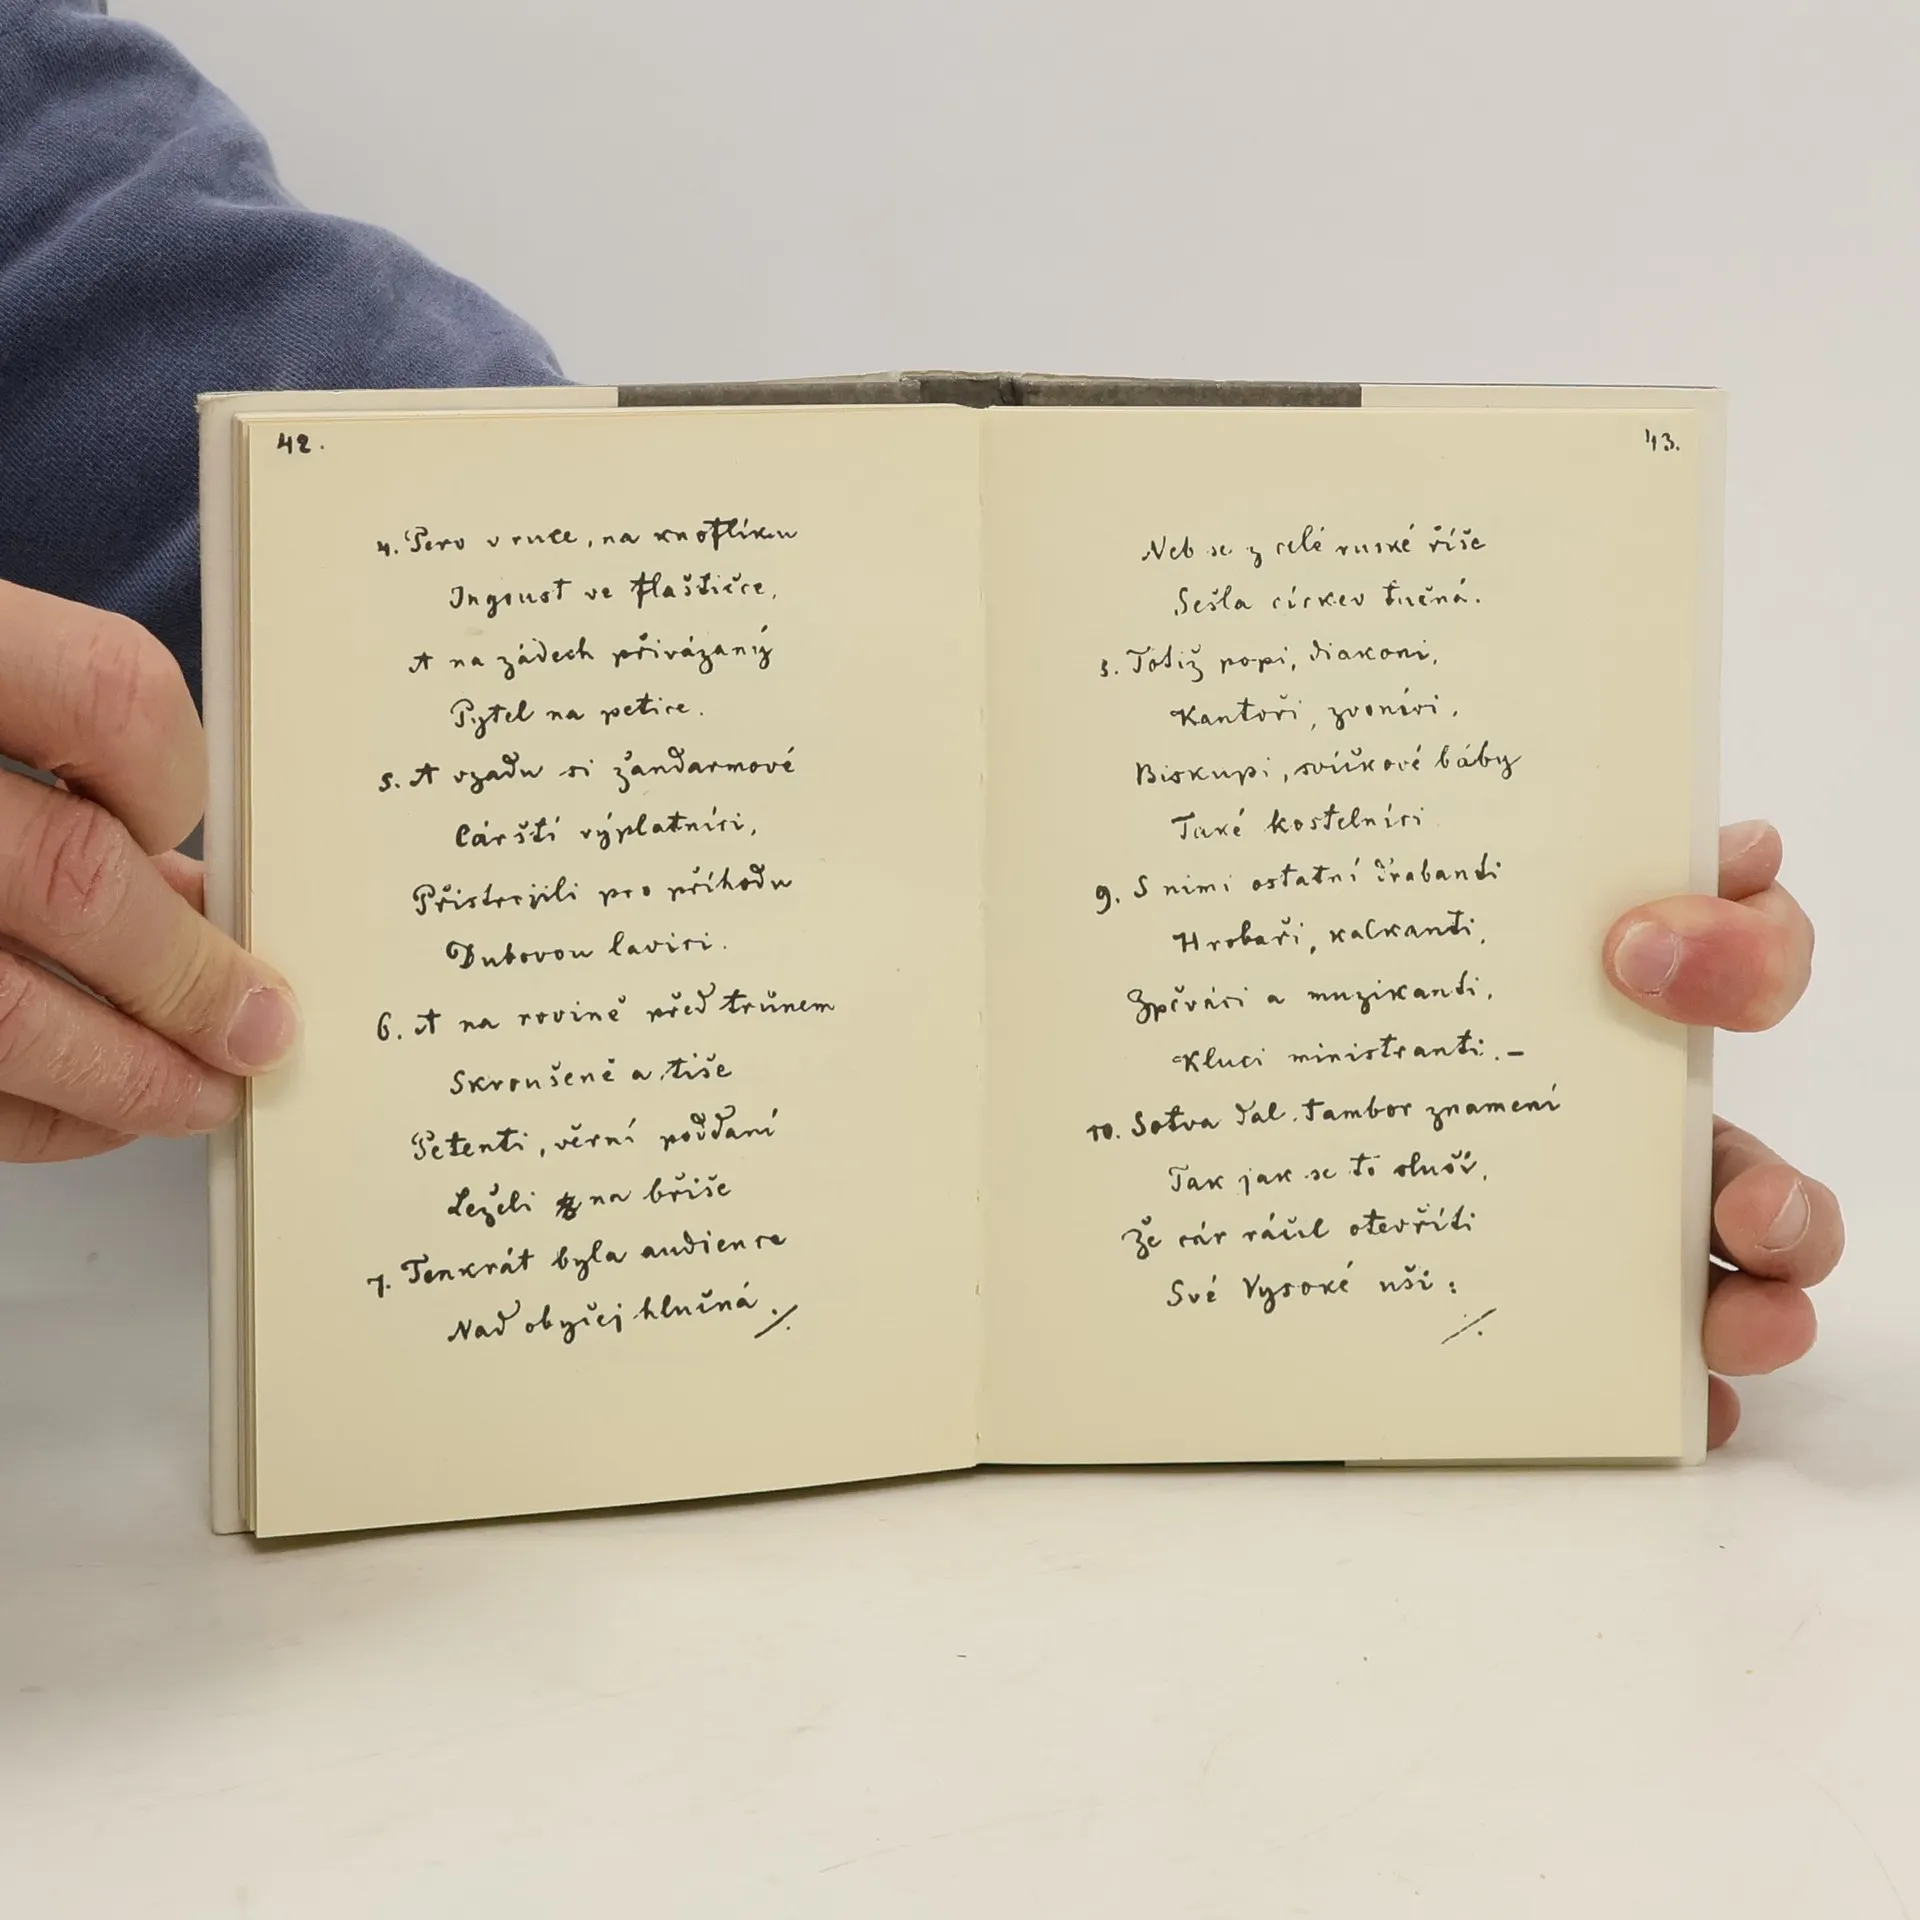 42.
4. Pero v ruce, na knoflíku
Ingoust ve flaštičce,
A na zádech přivázaný
Pytel na petice.
5. A vzadu si žandarmové
Cárští výplatníci,
Přistrojili pro příhodu
Dubovou lavici.
6. A na rovině před trůnem
Skroušeně a tiše
Petenti, věrní poddaní
Leželi na břiše
7. Tenkrát byla audience
Nad obyčej hlučná ./.
43.
Neb se z celé ruské říše
Sešla církev tučná.
8. Totiž popi, diakoni,
Kantoři, zvoníci,
Biskupi, svíčkové báby
Také kostelníci
9. S nimi ostatní drabanti
Hrobaři, kalkanti,
Zpěváci a muzikanti,
Kluci ministranti. –
10. Sotva dal tambor znamení
Tak jak se to sluší,
Že cár ráčil otevříti
Své Vysoké uši:
./.